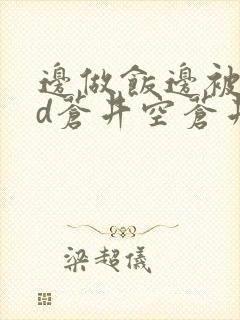 邊做飯邊被
d蒼井空蒼井
梁超儀